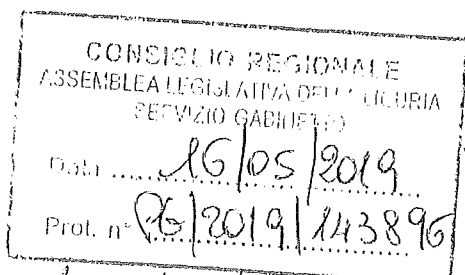 CONSIGLIO REGIONALE
ASSEMBLEA LEGISLATIVA DELLA LIGURIA
SERVIZIO GABINETTO
Data ..... 16/05/2019
Prot. n° PG/2019/143896